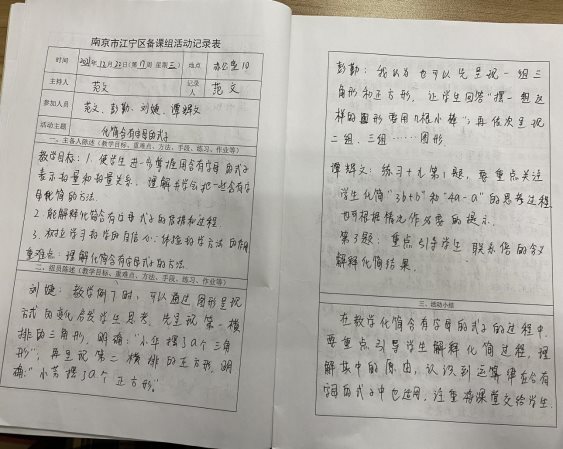 南京市江宁区备课组活动记录表
时间 2021年12月22日(第17周 星期三) 地点 办公室10
主持人 范文 记录人 范文
参加人员 范文、彭勤、刘婕、谭辉文
活动主题 化简含有字母的式子
一、主备人陈述(教学目标、重难点、方法、手段、练习、作业等)
教学目标:1. 使学生进一步掌握用含有字母的式子
表示数量和数量关系,理解并学会把一些含有字
母化简的方法.
2. 能解释化简含有字母式子的依据和过程.
3. 树立学习数学的自信心,体验数学方法的
重难点:理解化简含有字母式子的方法.
二、组员陈述(教学目标、重难点、方法、手段、练习、作业等)
刘婕:教学例7时,可以通过图形呈现
方式的变化启发学生思考,先呈现第一横
排的三角形,明确:“小华摆了a个三角
形”,再呈现第二横排的正方形,明
确:“小芳摆了a个正方形.”
彭勤:我认为也可以先呈现一组三
角形和正方形,让学生回答“摆一组这
样的图形要用几根小棒”,再依次呈现
二组、三组……图形.
谭辉文:练习十九第1题,要重点关注
学生化简“3b+b”和“4a-a”的思考过程.
也可根据情况作必要的提示.
第3题:重点引导学生联系倍的含义
解释化简结果.
三、活动小结
在教学化简含有字母的式子的过程中,
要重点引导学生解释化简过程,理
解其中的原由,认识到运算律在含有
字母的式子中也适用,注重将课堂交给学生.